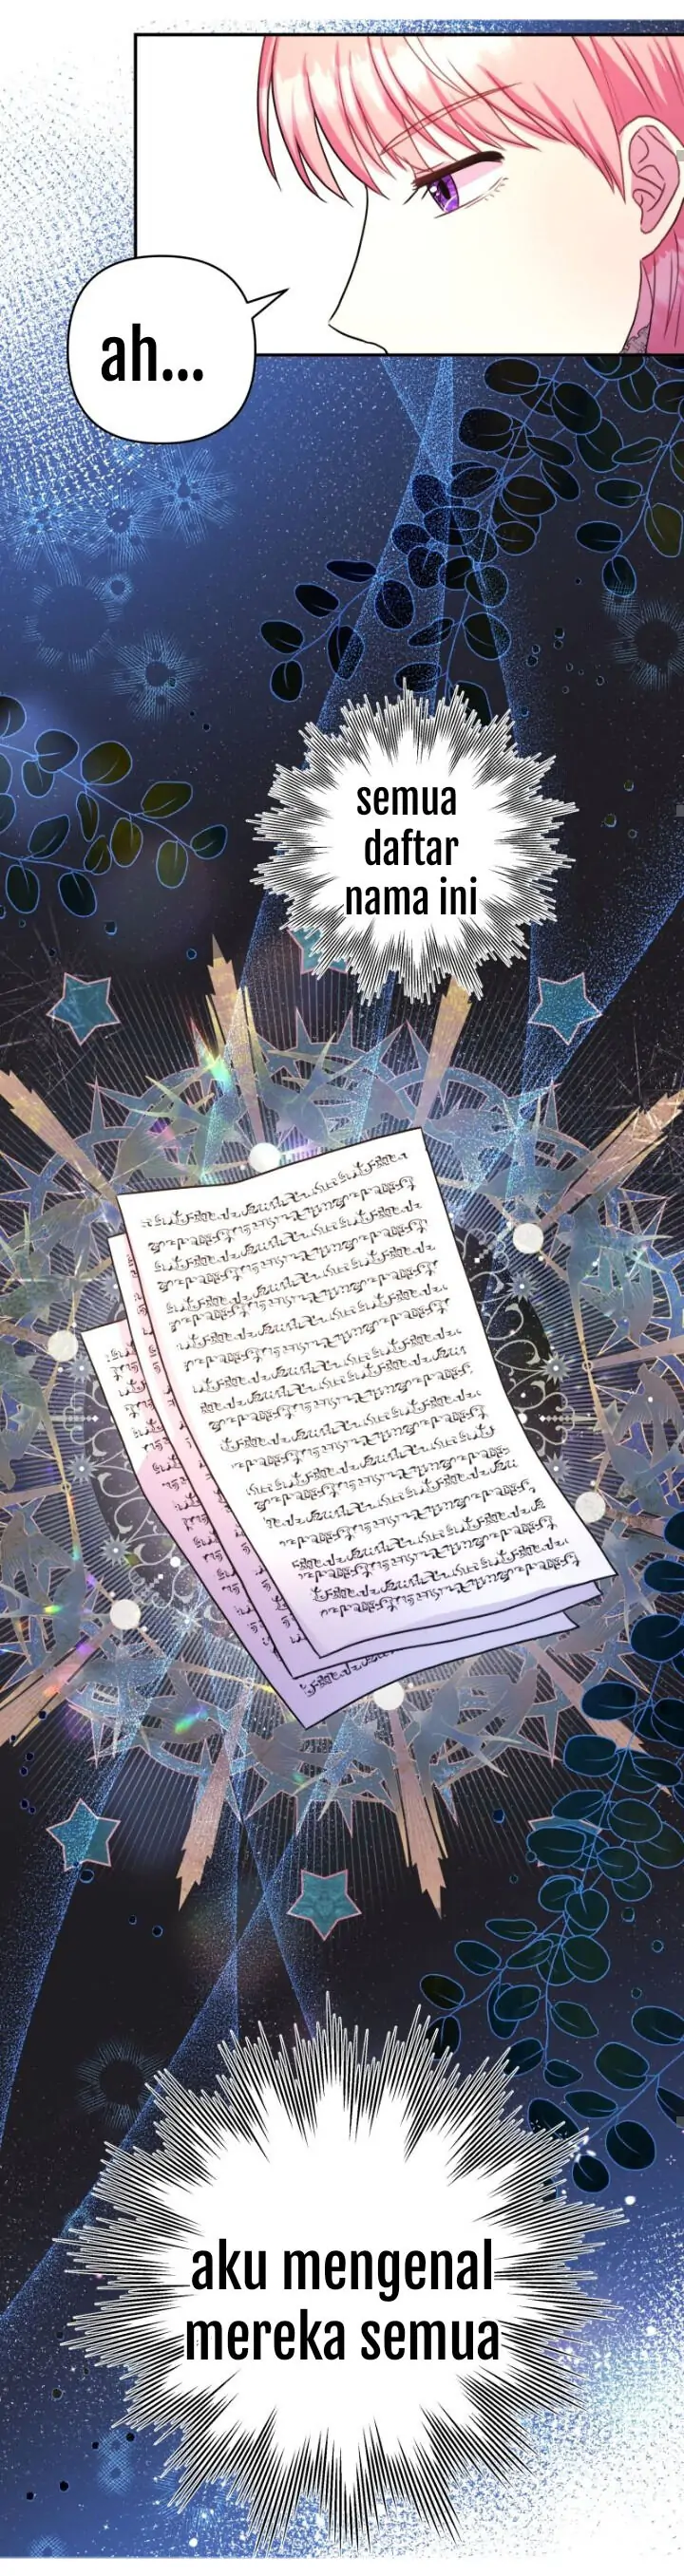 ah...
semua
daftar
nama ini
aku mengenal
mereka semua